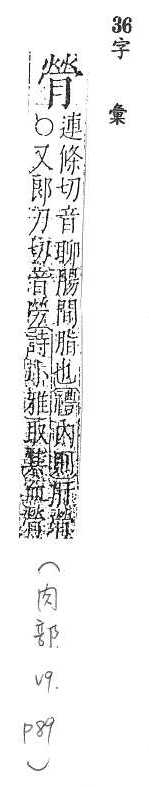 36字 彙
膋
連條切音聊腸間脂也禮內則肝膋
○又郎刀切音勞詩小雅取其血膋
(肉部 v9. p89)